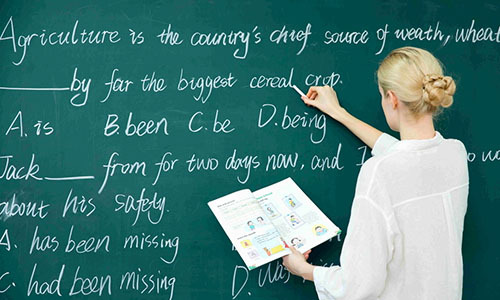 Agriculture is the country's chief source of weath, wheat
by far the biggest cereal crop.
A. is B. been C. be D. being
Jack from for two days now, and I wo
about his safety.
A. has been missing
C. had been missing D. Was missing